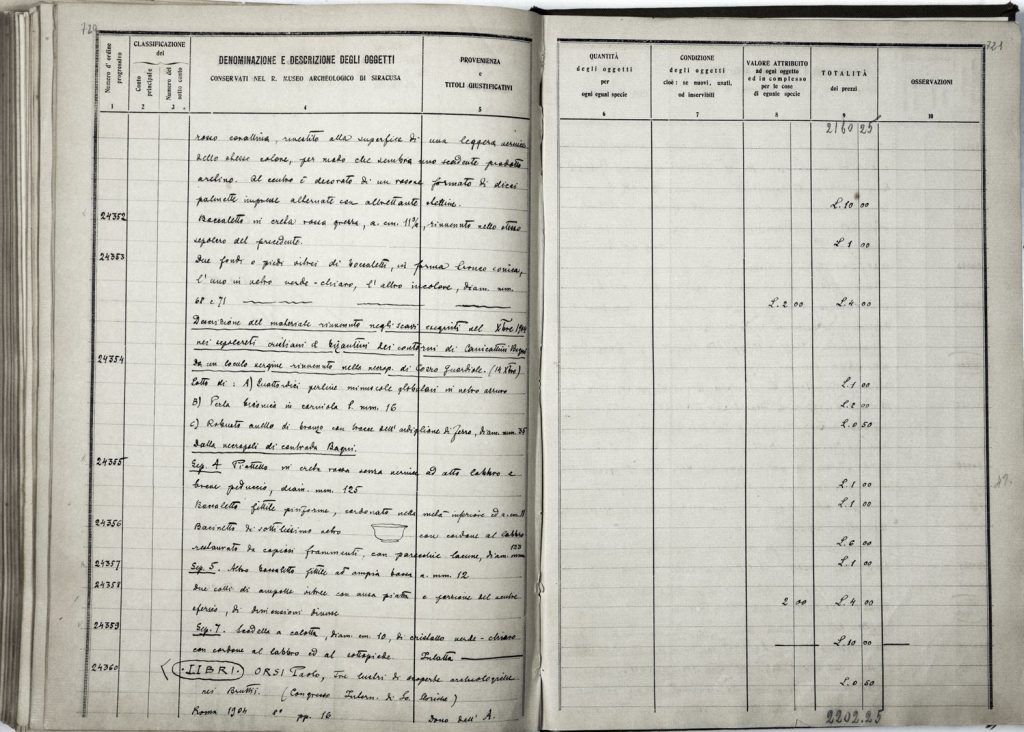 720
721
Numero d'ordine progressivo
CLASSIFICAZIONE del
Conto principale
Numero del sotto conto
DENOMINAZIONE E DESCRIZIONE DEGLI OGGETTI
CONSERVATI NEL R. MUSEO ARCHEOLOGICO DI SIRACUSA
PROVENIENZA
e
TITOLI GIUSTIFICATIVI
1 2 3 4 5
QUANTITÀ
degli oggetti
per
ogni egual specie
CONDIZIONE
degli oggetti
cioè: se nuovi, usati,
od inservibili
VALORE ATTRIBUITO
ad ogni oggetto
ed in complesso
per le cose
di eguale specie
TOTALITÀ
dei prezzi
OSSERVAZIONI
6 7 8 9 10
2160 25
rosso corallina, rivestito alla superficie di una leggera vernice
dello stesso colore, per modo che sembra uno scadente prodotto
aretino. Al centro è decorato di un rosone formato di dieci
palmette impresse alternate con altrettante stelline. L. 10 00
24352 Boccaletto in creta rossa grezza, a. cm. 11 ½, rinvenuto nello stesso
sepolcro del precedente. L. 1 00
24353 Due fondi o piedi vitrei di boccaletti, in forma tronco conica,
l'uno in vetro verde-chiaro, l'altro incolore, diam. mm.
68 e 71 L. 2 00 L. 4 00
Descrizione del materiale rinvenuto negli scavi eseguiti nel Xbre 1904
nei sepolcreti cristiani e bizantini dei contorni di Canicattini Bagni
24354 Da un loculo vergine rinvenuto nella necrop. di Cozzo Guardiole. (14 Xbre)
Lotto di: A) Quattordici perline minuscole globulari in vetro azzurro L. 1 00
B) Perla biconica in corniola l. mm. 16 L. 2 00
C) Robusto anello di bronzo con tracce dell'ardiglione di ferro, diam. mm. 35 L. 0 50
Dalla necropoli di contrada Bagni.
24355 Sep. 4 Piattello in creta rossa senza vernice ad alto labbro e
breve peduccio, diam. mm. 125 L. 1 00
Boccaletto fittile piriforme, cordonato nella metà inferiore ed a. cm. 11 L. 1 00
24356 Bacinetto di sottilissimo vetro con cordone al labbro
restaurato da copiosi frammenti, con parecchie lacune, diam. mm. 123 L. 6 00
24357 Sep. 5. Altro boccaletto fittile ad ampia bocca a. mm. 12 L. 1 00
24358 Due colli di ampolle vitree con ansa piatta e porzione del ventre
sferico, di dimensioni diverse 2 00 L. 4 00
24359 Sep. 7. Scodella a calotta, diam. cm. 10, di cristallo verde-chiaro
con cordone al labbro ed al sottopiede. Intatta L. 10 00
24360 LIBRI. ORSI Paolo, Tre lustri di scoperte archeologiche
nei Bruttii. (Congresso Intern. di Sc. Storiche) L. 0 50
Roma 1904 8° pp. 16 Dono dell'A.
2202.25